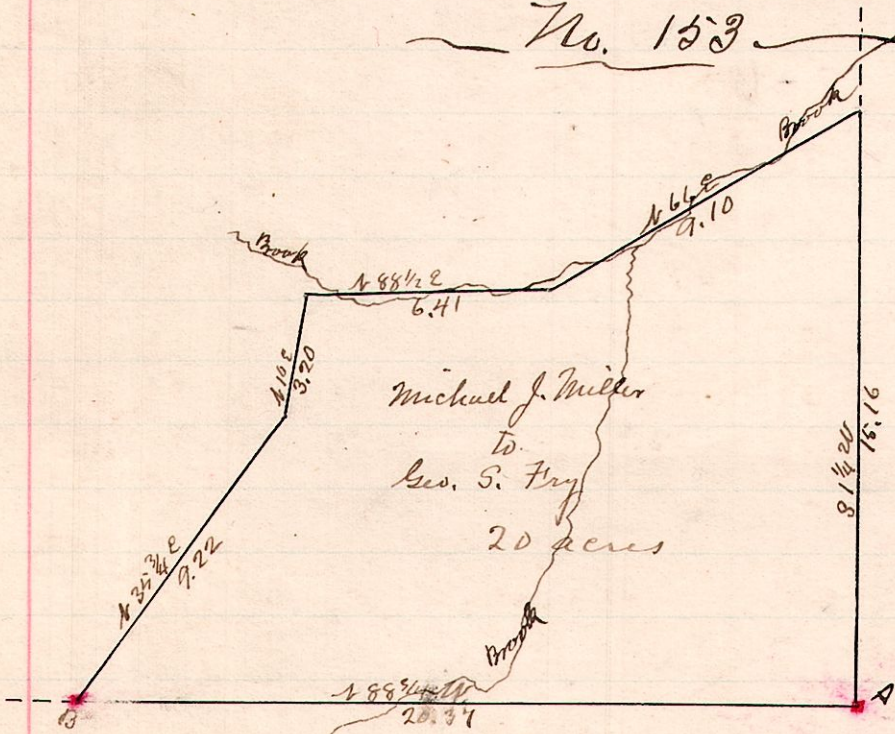 No. 153
Brook
N 66 E
9.10
Brook
N 88 1/2 E
6.41
N 10 E
3.20
Michael J. Miller
to
Geo. S. Fry
20 acres
S 1 1/4 W
15.16
N 35 3/4 E
9.22
Brook
N 88 3/4 W
20.37
B
A